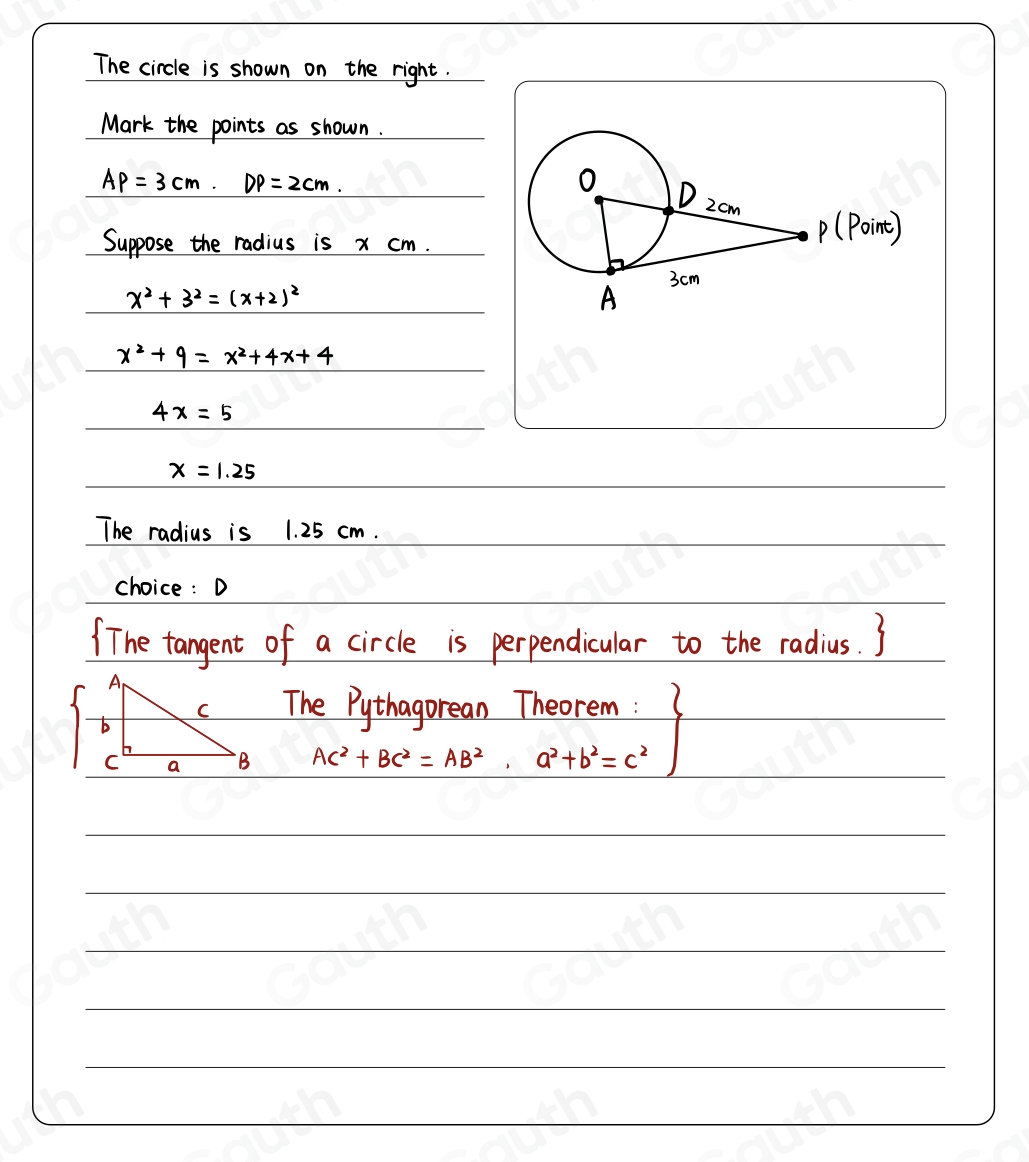 The circle is shown on the right.
Mark the points as shown.
AP = 3 cm. DP = 2cm.
Suppose the radius is x cm.
x² + 3² = (x+2)²
x² + 9 = x²+4x+4
4x = 5
x = 1.25
The radius is 1.25 cm.
choice: D
O
D
2cm
P (Point)
3cm
A
{The tangent of a circle is perpendicular to the radius.}
A
b
c
C
a
B
The Pythagorean Theorem:
AC² + BC² = AB², a²+b²=c²
Gauth